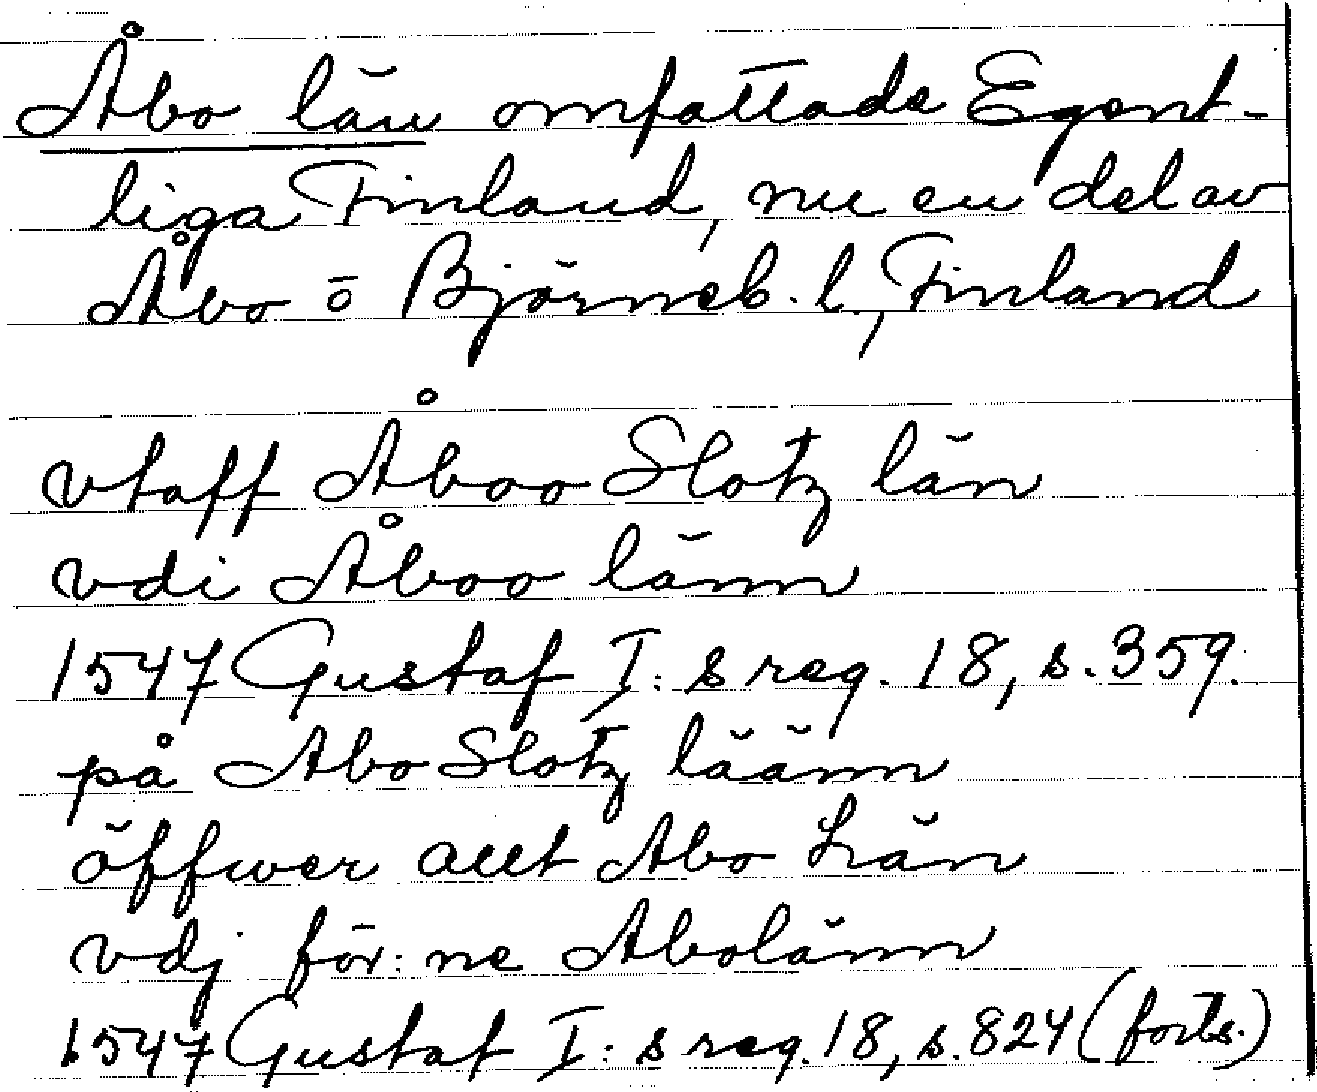 Åbo län omfattade Egent-
liga Finland, nu en del av
Åbo o Björneb. l., Finland
vtaff Åboo Slotz län
vdi Åboo länn
1547 Gustaf I:s reg. 18, s. 359.
på Abo Slotz läänn
öffwer allt Abo Län
vdj för:ne Abolänn
1547 Gustaf I:s reg. 18, s. 824 (forts.)